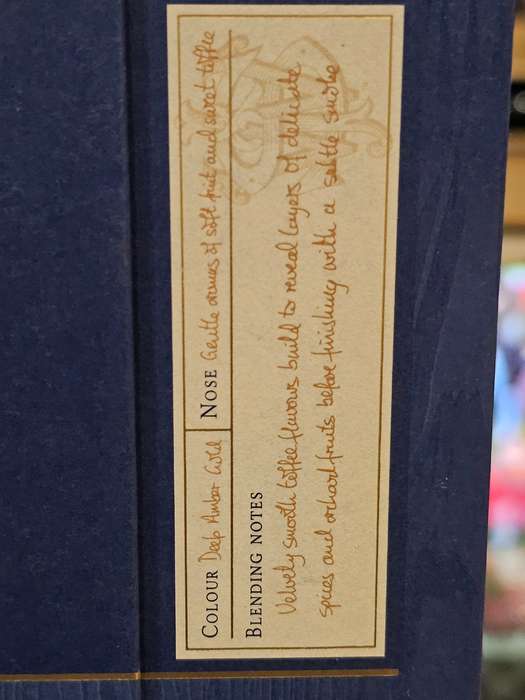 COLOUR Deep Amber Gold
NOSE Gentle aromas of soft fruit and sweet toffee
BLENDING NOTES
Velvety smooth toffee flavours build to reveal layers of delicate
spices and orchard fruits before finishing with a subtle smoke